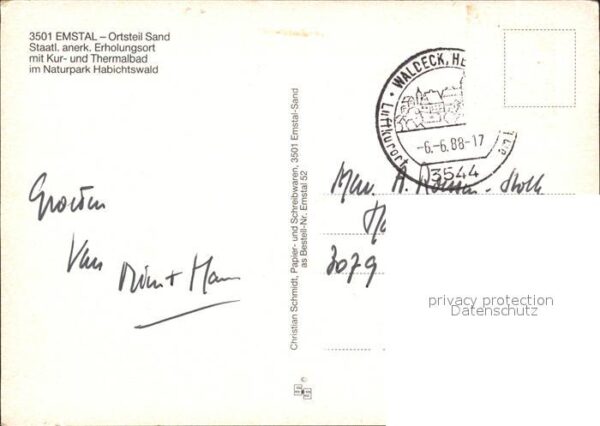 3501 EMSTAL – Ortsteil Sand
Staatl. anerk. Erholungsort
mit Kur- und Thermalbad
im Naturpark Habichtswald
WALDECK, HE
Luftkurort
-6.-6.88-17
3544
Christian Schmidt, Papier- und Schreibwaren, 3501 Emstal-Sand
as Bestell-Nr. Emstal 52
Groeten
Van
3079
privacy protection
Datenschutz